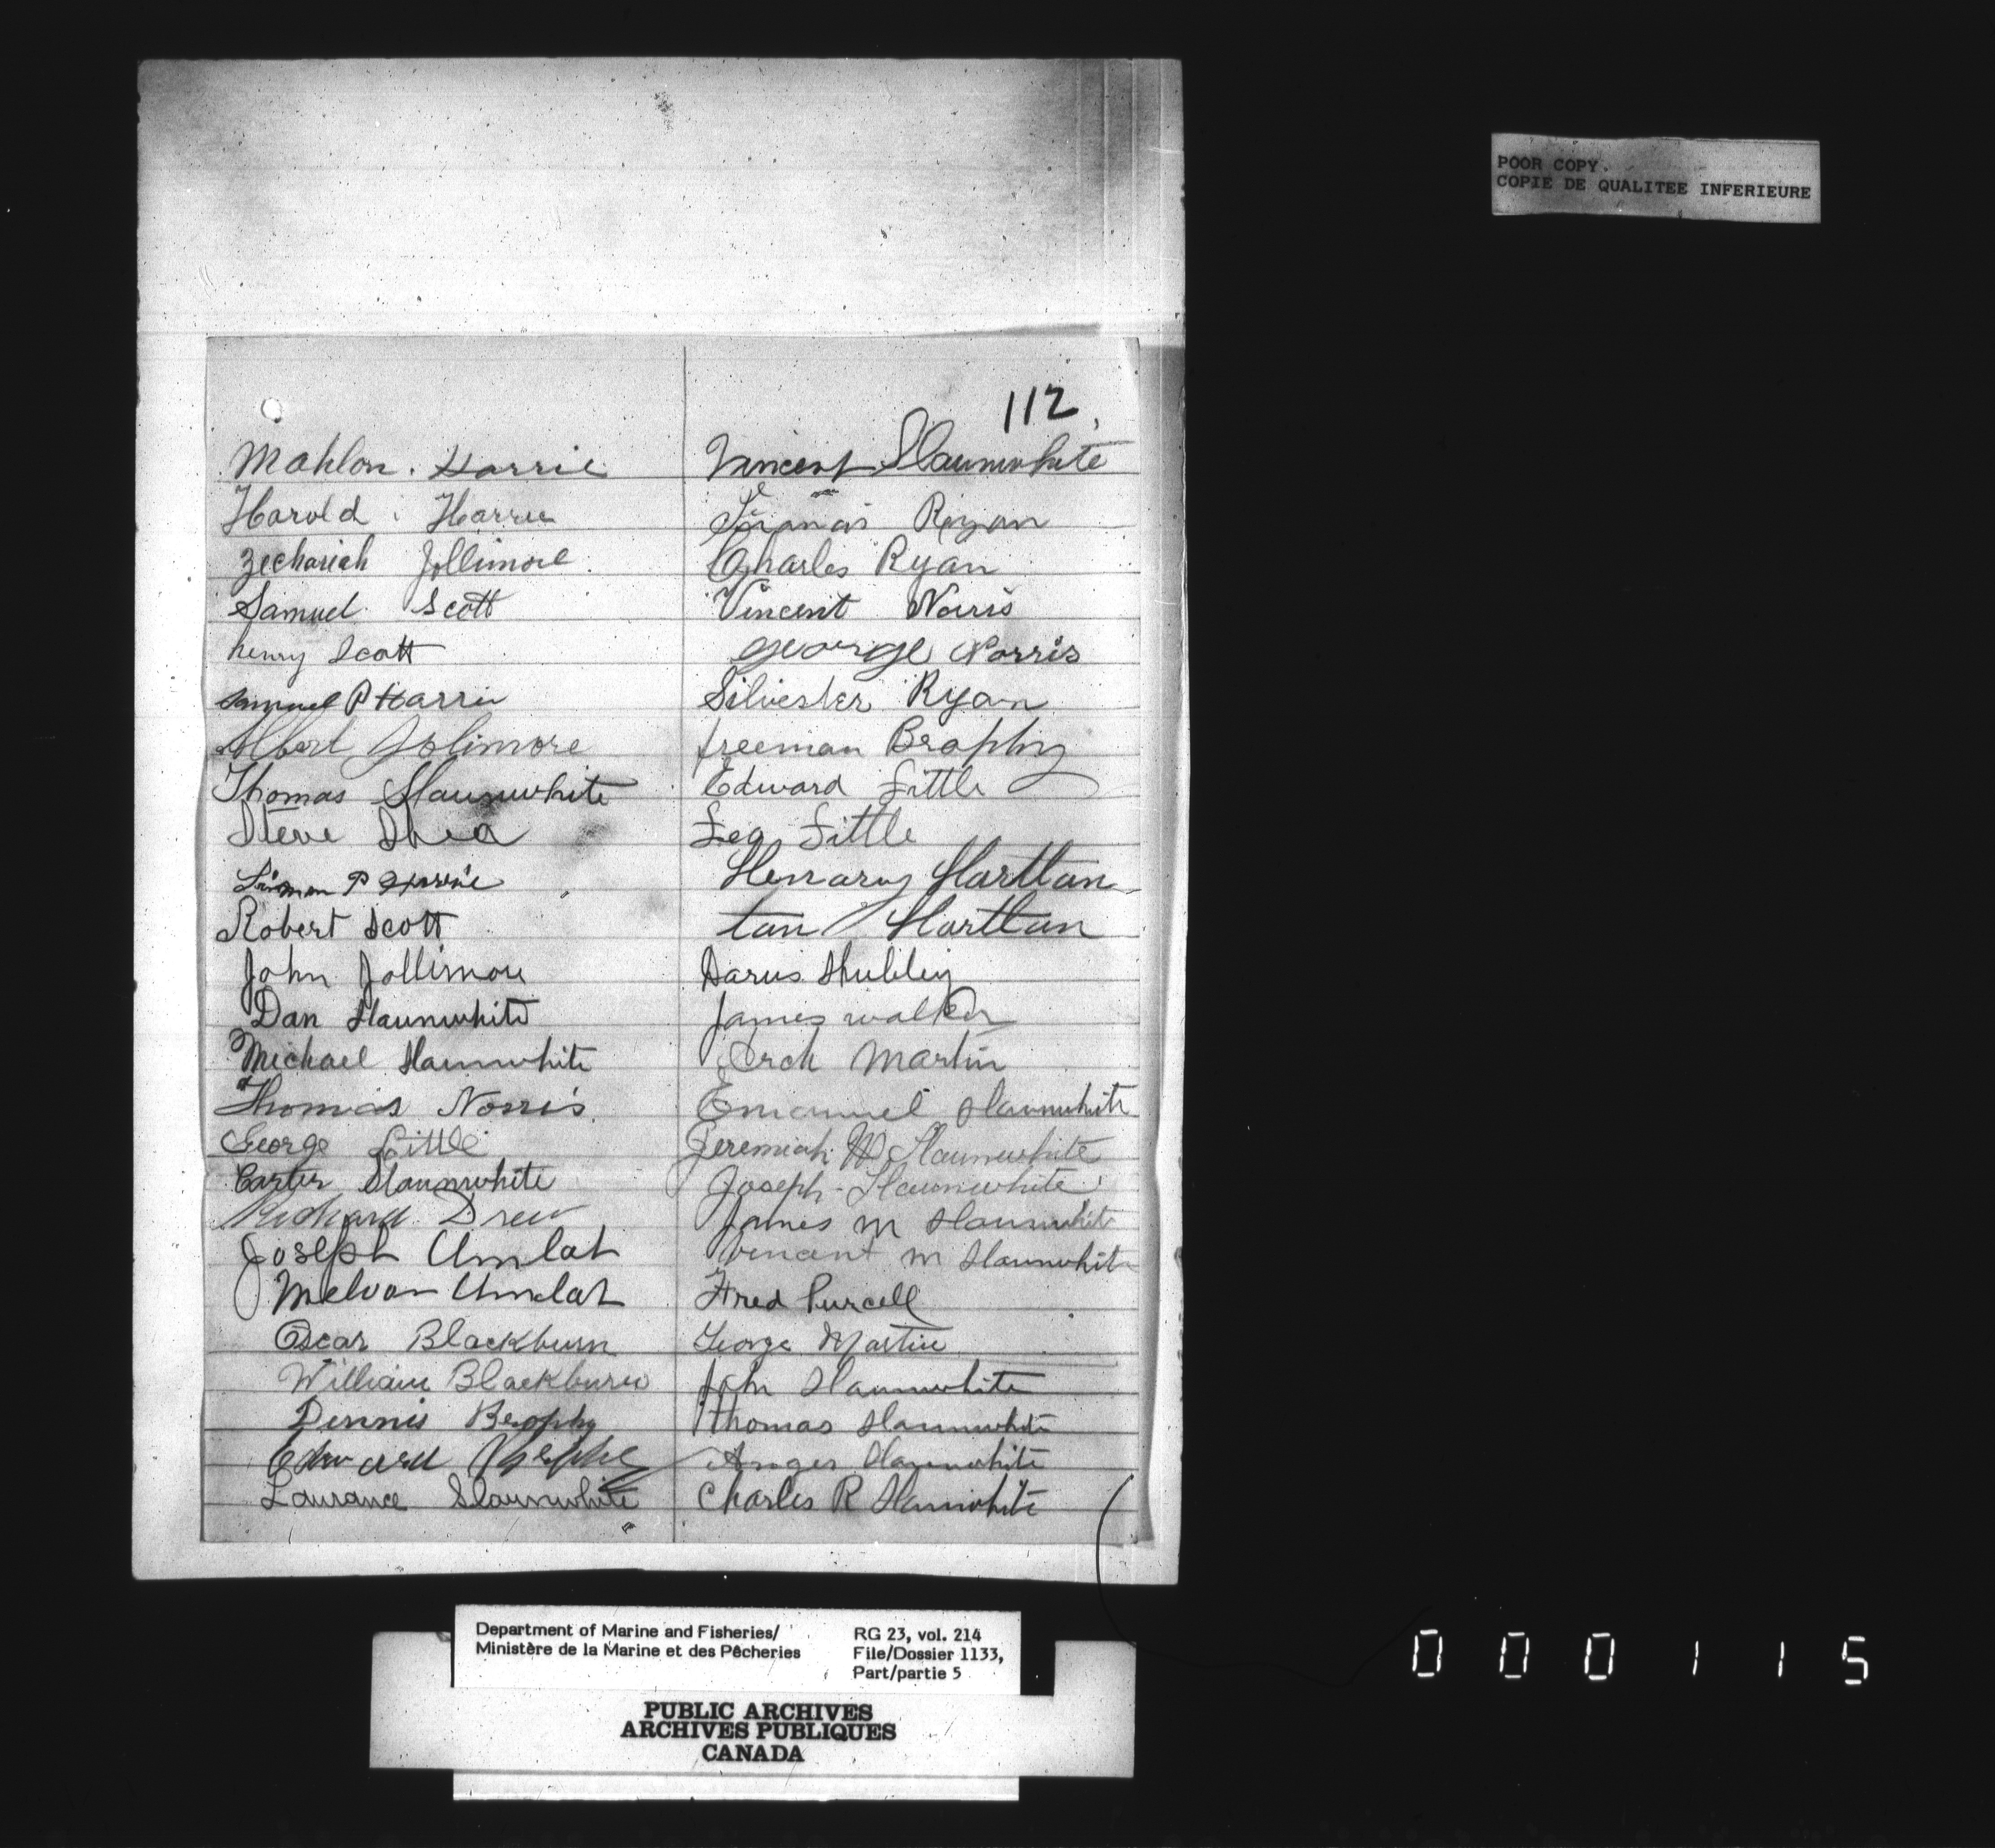 POOR COPY.
COPIE DE QUALITEE INFERIEURE
112.
Mahlon. Harrie
Harold Harrie
Zechariah Jollimore.
Samuel Scott
henry Scott
Samuel P Harrie
Albert Jolimore
Thomas Slaunwhite
Steve Shea
P Harrie
Robert Scott
John Jollimore
Dan Slaunwhite
Michael Slaunwhite
Thomas Norris
George Little
Carter Slaunwhite
Richard Drew
Joseph Umlah
Melvon Umlah
Oscar Blackburn
William Blackburn
Dennis Brophy
Edward
Laurance Slaunwhite
Vincent Slaunwhite
Francis Ryan
Charles Ryan
Vincent Norris
george Norris
Silvester Ryan
freeman Brophy
Edward Little
Leo Little
Henary Hartlan
tan Hartlan
Darus
James walker
Arch Martin
Emanuel Slaunwhite
Jeremiah W Slaunwhite
Joseph Slaunwhite
James M Slaunwhite
Vincant M Slaunwhite
Fred Purcell
George Martin
John Slaunwhite
Thomas Slaunwhite
Slaunwhite
Charles R Slaunwhite
Department of Marine and Fisheries/
Ministère de la Marine et des Pêcheries
RG 23, vol. 214
File/Dossier 1133,
Part/partie 5
PUBLIC ARCHIVES
ARCHIVES PUBLIQUES
CANADA
000115